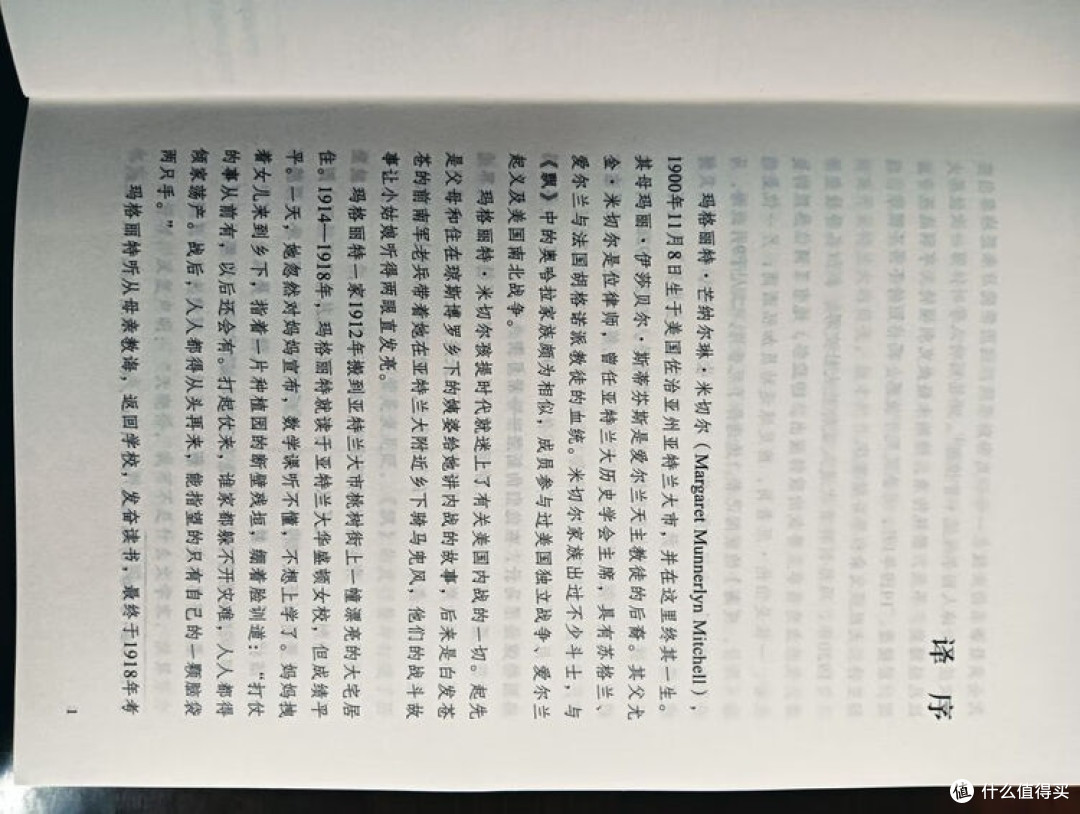 译 序
玛格丽特·芒纳尔琳·米切尔（Margaret Munnerlyn Mitchell），
1900年11月8日生于美国佐治亚州亚特兰大市，并在这里终其一生。
其母玛丽·伊莎贝尔·斯蒂芬斯是爱尔兰天主教徒的后裔。其父尤
金·米切尔是位律师，曾任亚特兰大历史学会主席，具有苏格兰、
爱尔兰与法国胡格诺派教徒的血统。米切尔家族出过不少斗士，与
《飘》中的奥哈拉家族颇为相似，成员参与过美国独立战争、爱尔兰
起义及美国南北战争。
玛格丽特·米切尔孩提时代就迷上了有关美国内战的一切。起先
是父母和住在琼斯博罗乡下的姨婆给她讲内战的故事，后来是白发苍
苍的前南军老兵带着她在亚特兰大附近乡下骑马兜风，他们的战斗故
事让小姑娘听得两眼直发亮。
玛格丽特一家1912年搬到亚特兰大市桃树街上一幢漂亮的大宅居
住。1914—1918年，玛格丽特就读于亚特兰大华盛顿女校，但成绩平
平。一天，她忽然对妈妈宣布，数学课听不懂，不想上学了。妈妈拽
着女儿来到乡下，指着一片种植园的断壁残垣，绷着脸训道：“打仗
的事从前有，以后还会有。打起仗来，谁家都躲不开灾难，人人都得
倾家荡产。战后，人人都得从头再来，能指望的只有自己的一颗脑袋
两只手。”
玛格丽特听从母亲教诲，返回学校，发奋读书，最终于1918年考
1
值 什么值得买